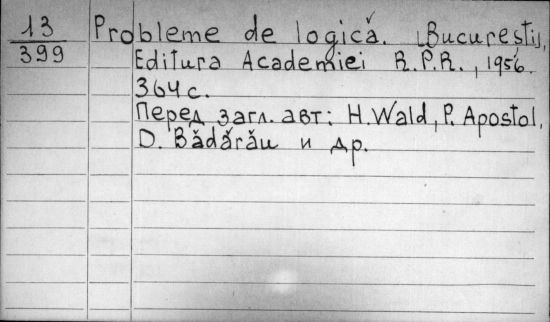 13
399
Probleme de logică. [București],
Editura Academiei R.P.R., 1956.
364 с.
Перед загл. авт: H. Wald, P. Apostol,
D. Bădărău и др.